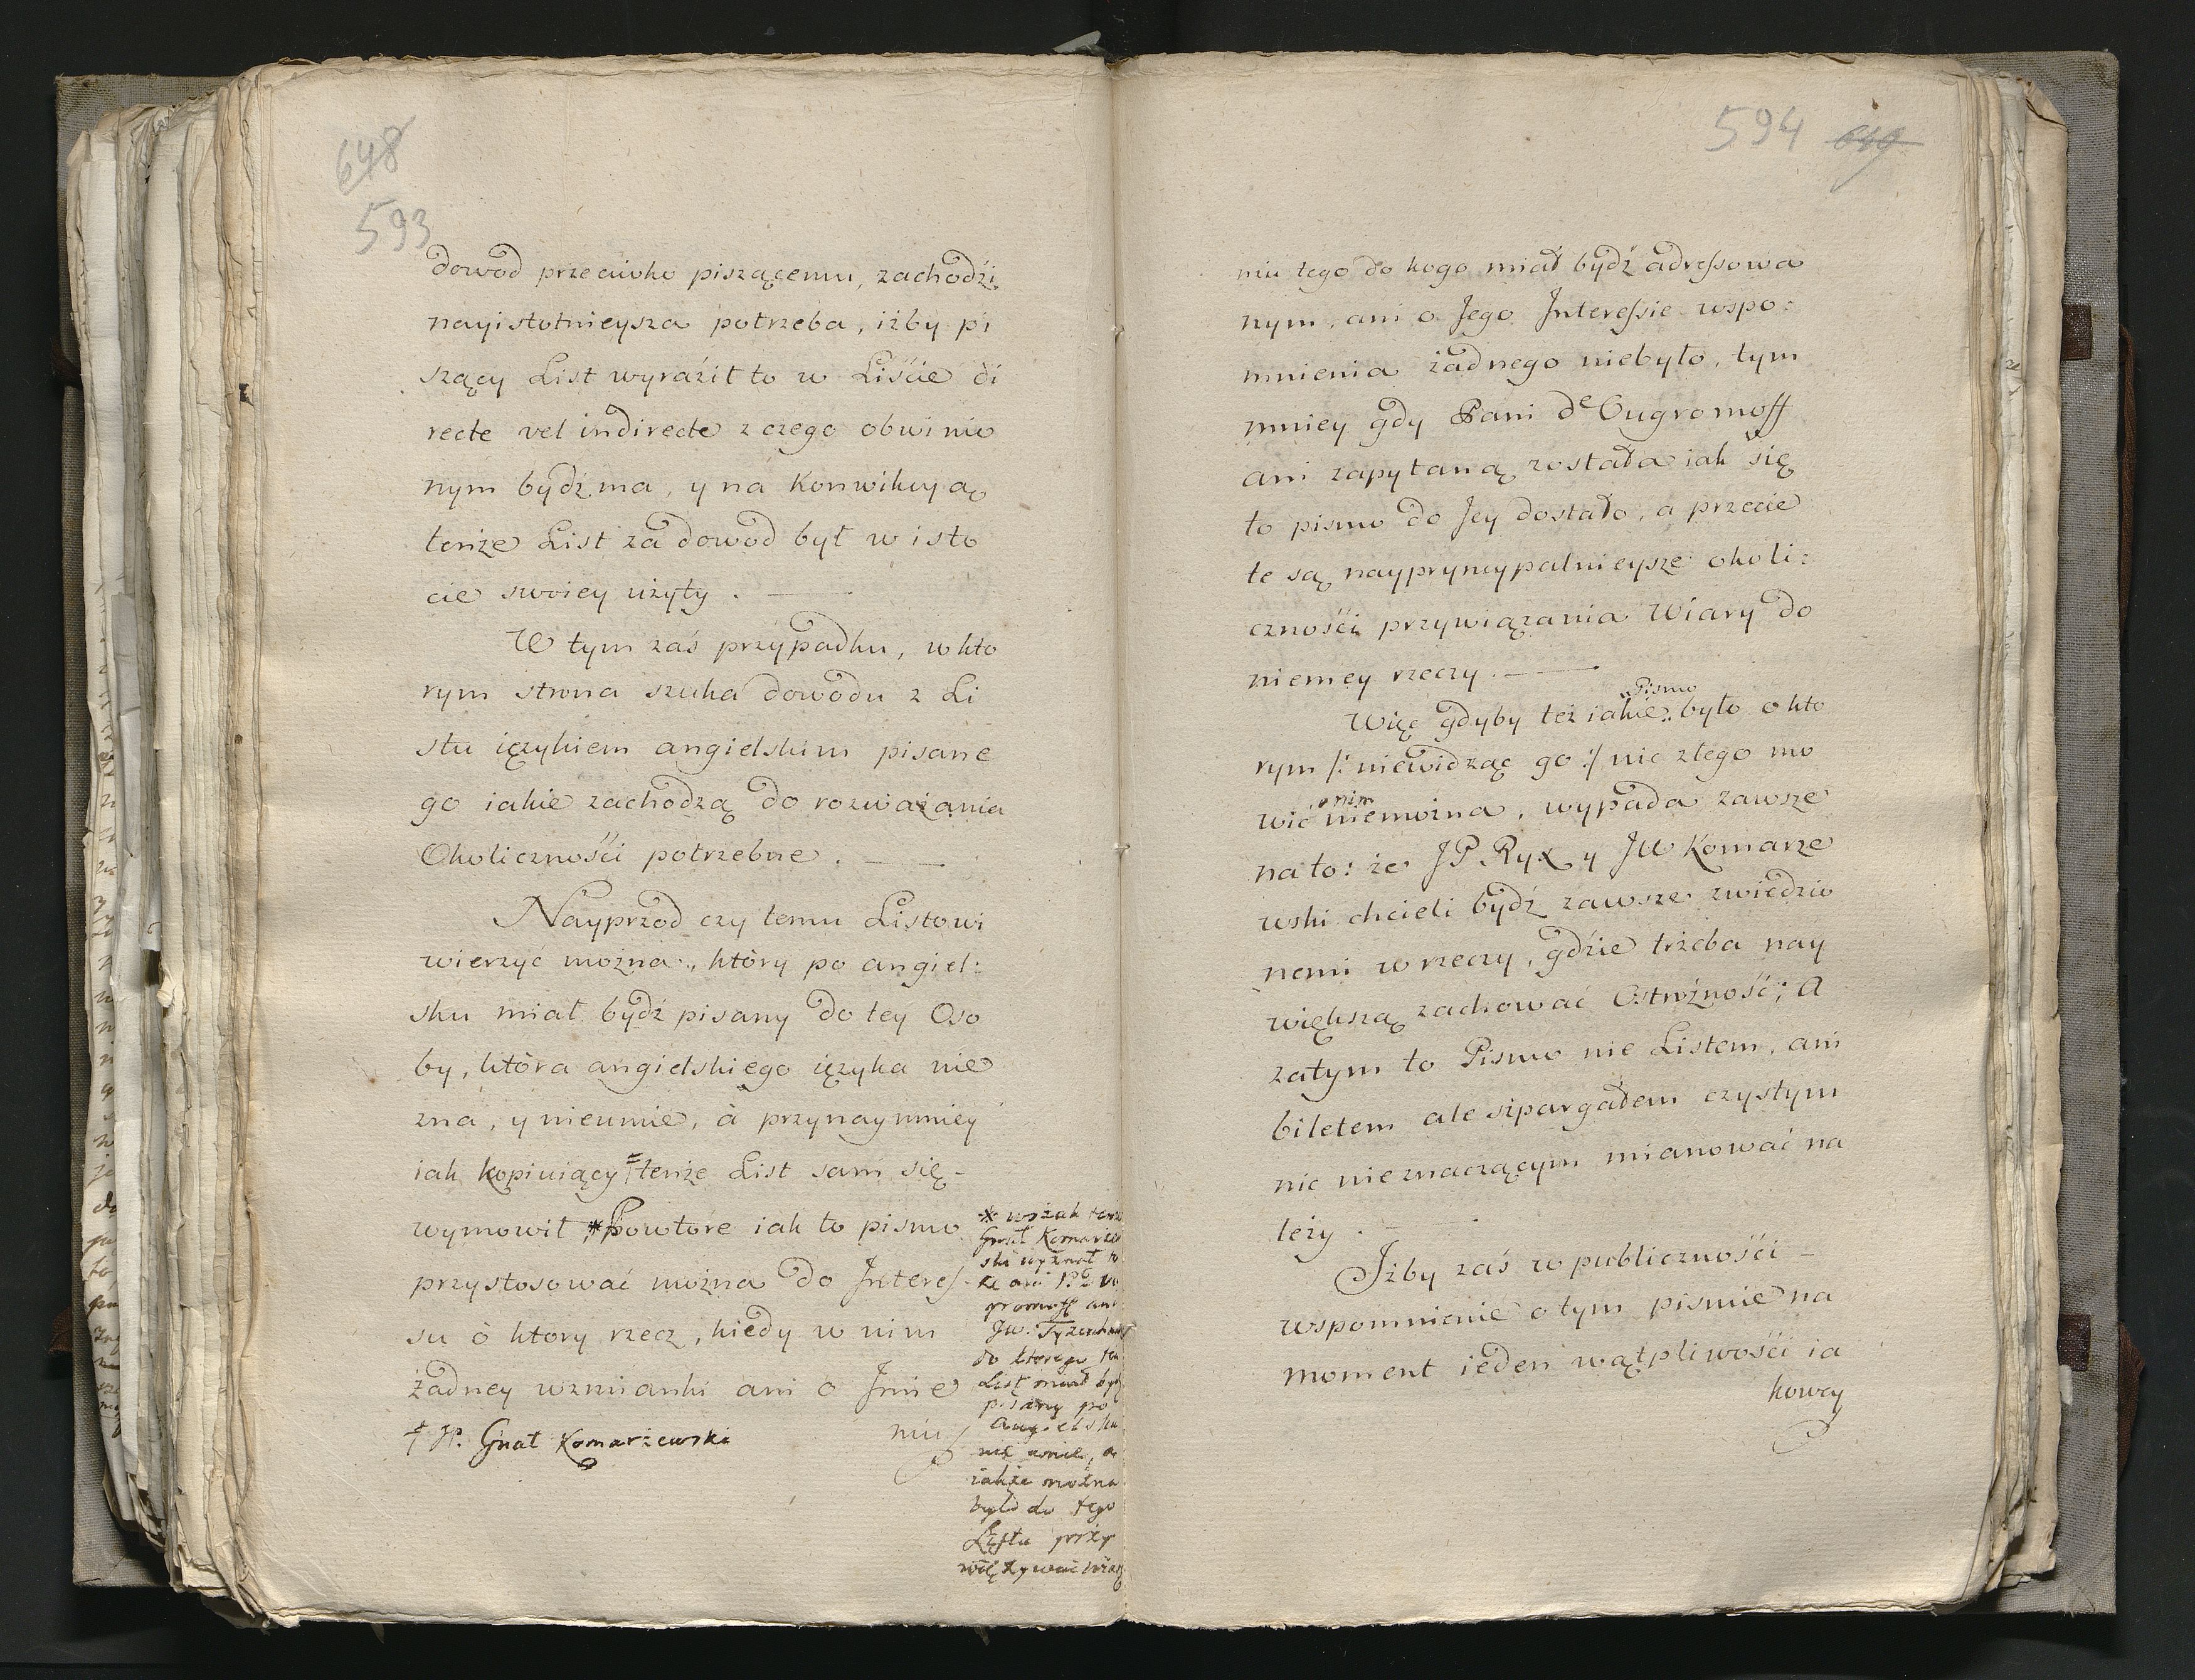 648
593
dowod przeciwko piszącemu, zachodźi
nayistotnieysza potrzeba, iżby pi
szący List wyraźił to w Liście di
recte vel indirecte z czego obwinio
nym bydź ma, y na Konwikcyą
tenże List za dowod był w isto
cie swoiey użyty. —
W tym zaś przypadku, w kto
rym strona szuka dowodu z Li
stu ięzykiem angielskim pisane
go iakie zachodzą do rozważania
Okolicznośći potrzebne. —
Nayprzod czy temu Listowi
wierzyć można, ktòry po angiel:
sku miał bydź pisany do tey Oso
by, ktòra angielskiego ięzyka nie
zna, y nieumie, à przynaymniey
iak kopiuiący † tenże List sam się -
wymowił, * Powtore iak to pismo
przystosować można do Interes-
su ò ktory rzecz, kiedy w nim
żadney wzmianki ani o Jmie
niu
† JP. Gnał Komarżewski
* wszak tenże
Gnał Komarżew
ski wyznał
że ani Pni U
gromoff ani
JW. Tyzenhauz
do ktorego ten
List miał być
pisany po
Angielsku
nie umie, a
iakże można
było do tego
Listu przy
więzywać wiarę
594 649
niu tego do kogo miał bydź adressowa
nym, ani o Jego Interessie wspo:
mnienia żadnego niebyło, tym
mniey gdy Pani de Ougromoff
ani zapytaną została iak się
to pismo do Jey dostało, a przecie
te są naypryncypalnieysze okoli:
cznośći przywiązania Wiary do
niemey rzeczy. —
Pismo
Więc gdyby też iakie było o kto
rym /: niewidząc go :/ nic złego mo
o nim
wić niemożna, wypada zawsze
na to: że JP Ryx y JW Komarze
wski chcieli bydź zawsze zwiedzio
nemi w rzeczy, gdzie trzeba nay
większą zachować Ostrożność; A
zatym to Pismo nie Listem, ani
biletem ale szpargałem czystym
nic nieznaczącym mianować na
leży. -
Jżby zaś w publicznośći -
wspomnienie o tym pismie na
moment ieden wątpliwośći ia
kowey